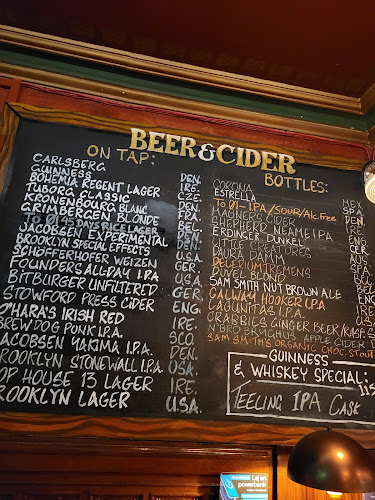 BEER & CIDER
ON TAP:
CARLSBERG DEN.
GUINNESS IRE.
BOHEMIA REGENT LAGER CZE.
TUBORG CLASSIC DEN.
KRONENBOURG BLANC FRA.
GRIMBERGEN BLONDE BEL.
TO ØL LAGER
JACOBSEN EXPERIMENTAL DEN.
BROOKLYN SPECIAL EFFECTS U.S.A.
SCHÖFFERHOFER WEIZEN GER.
FOUNDERS ALL-DAY I.P.A. U.S.A.
BITBURGER UNFILTERED GER.
STOWFORD PRESS CIDER ENG.
O'HARA'S IRISH RED IRE.
BREWDOG PONK I.P.A. SCO.
JACOBSEN YAKIMA I.P.A. DEN.
BROOKLYN STONEWALL I.P.A. USA.
HOP HOUSE 13 LAGER IRE.
BROOKLYN LAGER U.S.A.
BOTTLES:
CORONA MEX
ESTRELLA SPA
TO ØL - IPA/SOUR/Alc. Free
MAGNERS CIDER IRE
SHEPHERD NEAME IPA ENG
ERDINGER DUNKEL GER
LITTLE CREATURES AUS
DAURA DAMM SPA
DELERIUM TREMENS
DUVEL
SAM SMITH NUT BROWN ALE
GALWAY HOOKER I.P.A.
LAGUNITAS I.P.A.
CRABBIES GINGER BEER
APPLE CIDER
SAM SMITH'S ORGANIC CHOC. STOUT
GUINNESS
& WHISKEY SPECIAL:
TEELING IPA CASK
Lej en
powerbank